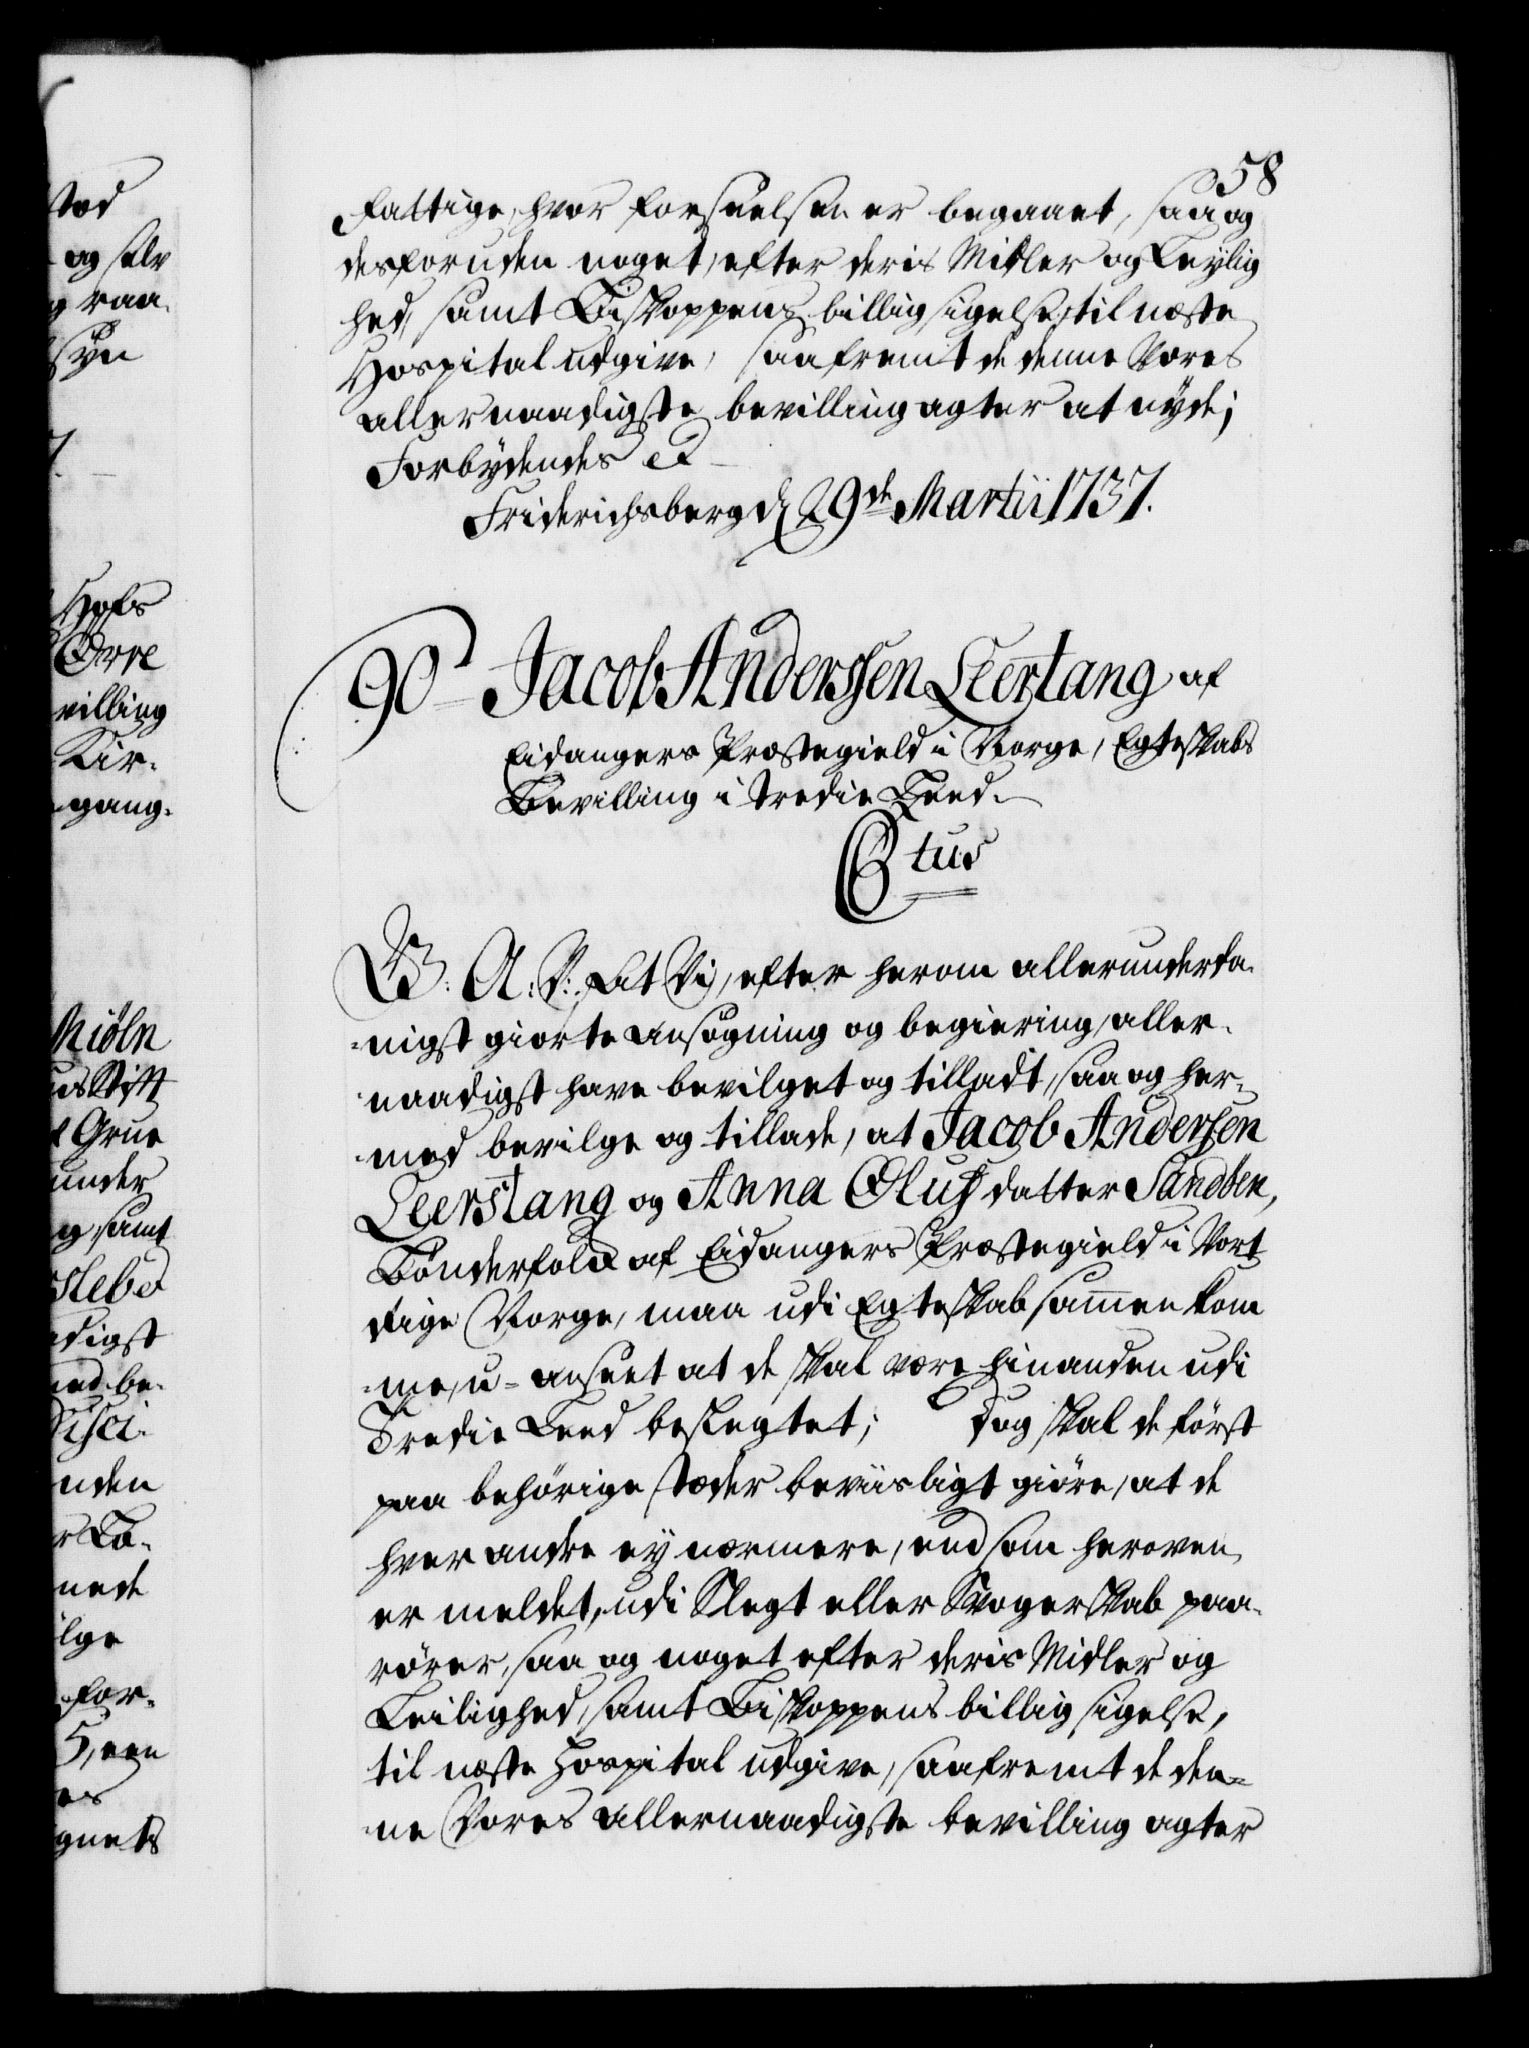 58
fattige, hvor forseelsen er begaaet, saa og
desforuden noget, efter deris Midler og Leylig
hed, samt Biskoppens billig sigelse, til næste
Hospital udgive, saafremt de denne Vores
allernaadigste bevilling agter at nyde;
Forbydendes &
Friderichsberg d 29de Martii 1737.
90 Jacob Anderssen Leerstang af
Eidangers Præstegield i Norge, Egteskabs
Bevilling i tredie Leed.
C6tus
G: A: V: At Vi, efter herom allerunderda
nigst giorte ansøgning og begiering, aller-
naadigst have bevilget og tilladt, saa og her-
med bevilge og tillade, at Jacob Andersen
Leerstang og Anna Olufsdatter Sandöen,
Bönderfolck af Eidangers Præstegield i Vort
Rige Norge, maa udi Egteskab sammen kom
me, u-anseet at de skal være hinanden udi
Tredie Leed beslegtet; Dog skal de först
paa behörige stæder beviisligt giöre, at de
hver andre ey nærmere, end som heroven
er meldet, udi Slegt eller Svogerskab paa-
rörer, saa og noget efter deris Midler og
Leilighed, samt Biskoppens billig sigelse,
til næste Hospital udgive, saafremt de den-
ne Vores allernaadigste bevilling agter